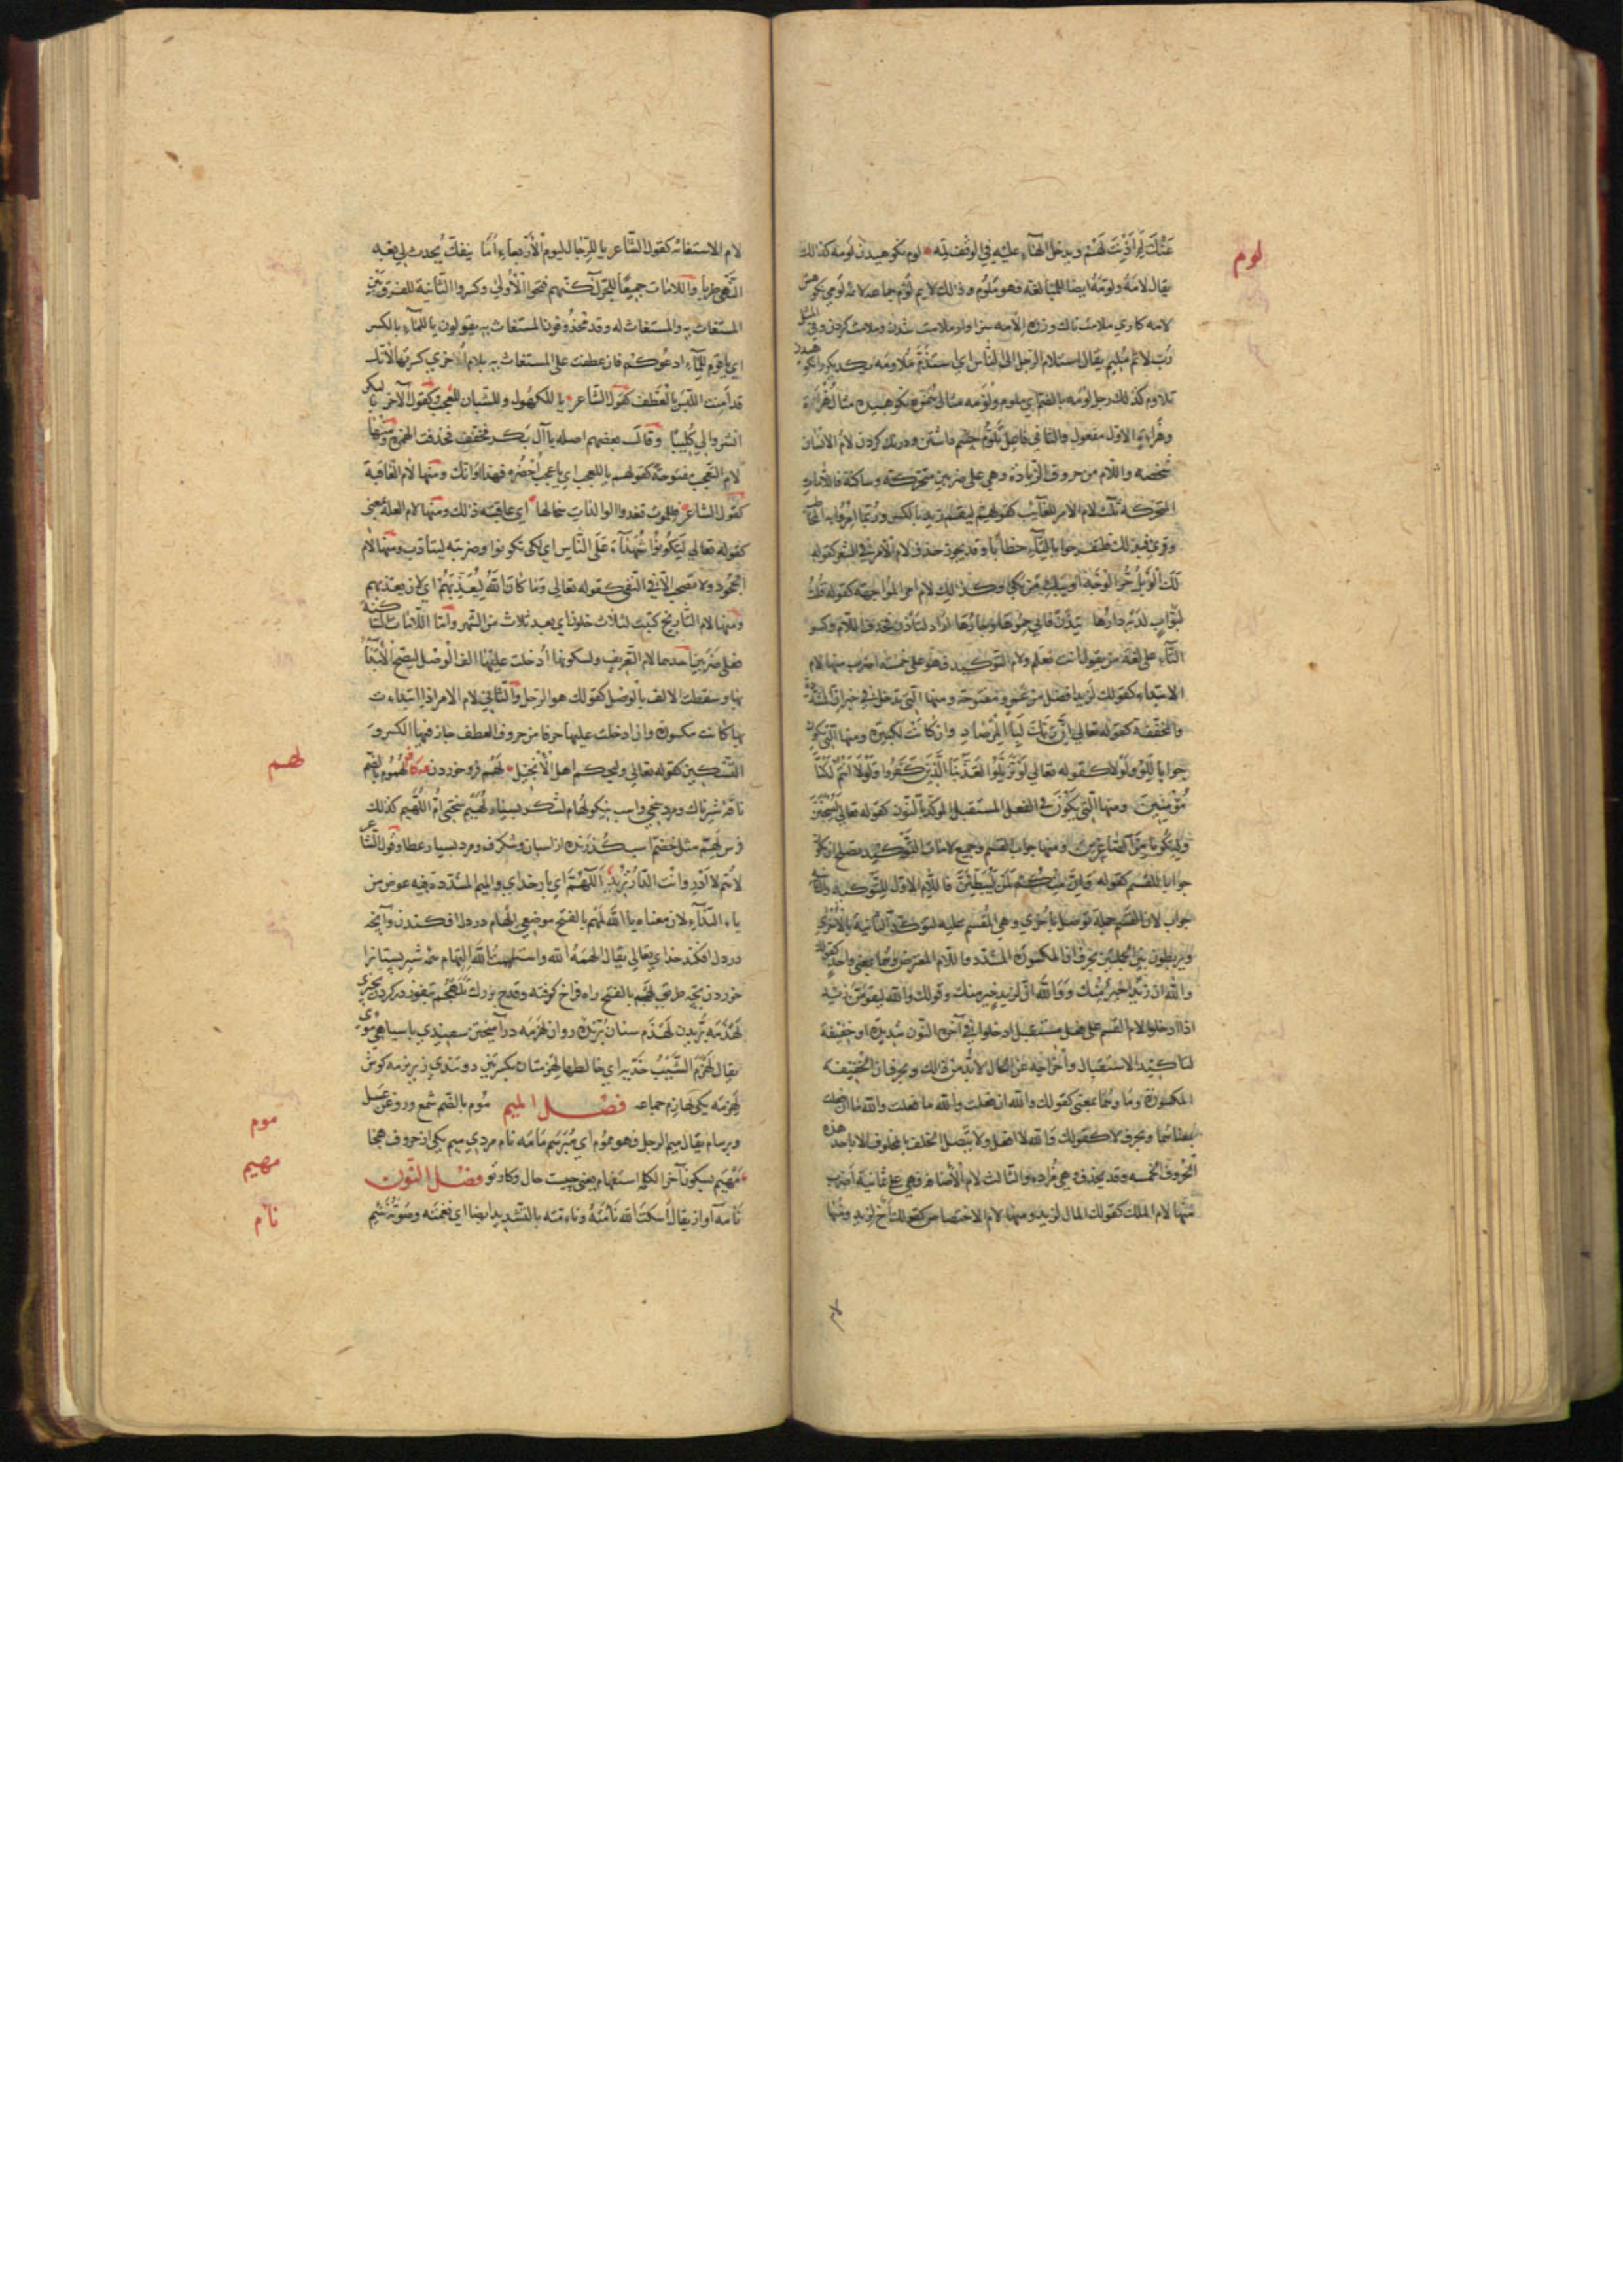 لوم
عَنْكَ لِمَ اَذِنْتَ لَهُمْ ويدخل الهاء عليه في الوقف لِمَه لوم نكوهيدن لومة كذلك
يقال لامَهُ ولوّمَهُ ايضا للمبالغة فهو مُلَوَّم وذلك لايم لُوَّم جماعه لائمة لومي نكوهش
لامه كاري ملامت ناك وزره الامه سزاوار ملامت شدن وملامت كردن وفي المثل
رُبّ لائم مُليم يقال استلام الرجل الى الناس اي استَذَمَّ مُلاومه يكديكر را نكوهيدن
تلاوم كذلك رجل لُومَه بالضم اي ملوم ولُوَمه مثال هُمَزه نكوهنده مثال هُزْأة
وهُزَأة الاول مفعول والثاني فاعل تَلَوُّم چشم داشتن ودرنك كردن لامُ الانسان
شخصه واللام من حروف الزيادة وهي على ضربين متحركة وساكنة فاللامات
المتحركة ثلث لام الامر للغائب كقولهم ليقم زيد بالكسر وربما امر وا به المخاطب
وقرئ فبذلك فلتفرحوا بالتاء خطابا وقد يجوز حذف لام الامر في الشعر كقوله
لك الويل حُرَّ الوجه او يبك من بكا وكذلك لام امر المواجهة كقوله قلت
لبوّاب لديه دارها تيذن فاني حموها وجارها اراد لتأذن فحذف اللام وكسر
التاء على لغة من يقول انت تعلم ولام التوكيد فهو على خمسة اضرب منها لام
الابتداء كقولك لَزيد افضل من عمرو مفتوحة ومنها التي تدخل في خبر ان المشددة
والمخففة كقوله تعالى اِنَّ رَبَّكَ لَبِالْمِرْصَادِ وان كانت لكبيرة ومنها التي تكون
جوابا لِلَوْ ولَوْلا كقوله تعالى لَوْ تَزَيَّلُوا لَعَذَّبْنَا الَّذِينَ كَفَرُوا وَلَوْلَا اَنْتُمْ لَكُنَّا
مُؤْمِنِينَ ومنها التي يَكُون في الفعل المستقبل الموكد بالنون كقوله تعالى لَيُسْجَنَنَّ
وَلَيَكُونًا مِنَ الصَّاغِرِينَ ومنها جواب القسم وجميع لامات التوكيد تصلح ان تكون
جوابا للقسم كقوله وَاِنَّ مِنْكُمْ لَمَنْ لَيُبَطِّئَنَّ فاللام الاول للتوكيد والثانية
جواب لان القسم جملة توصل باخرى وهي المقسم عليه لتوكد الثانية بالاولى
ويربطون بين الجملتين بحرف ان المكسورة المشدد واللام المعترض وهما بمعنى واحد كقولك
والله ان زيدا خير منك ووالله ان لزيد خير منك وقولك والله ليقومن زيد
اذا ادخلوا لام القسم على فعل مستقبل ادخلوا في آخره النون شديدة او خفيفة
لتاكيد الاستقبال واخراجه عن الحال لا بد من ذلك وبحرف ان الخفيفة
المكسورة وما وهما بمعنى كقولك والله ان فعلت والله ما فعلت والله ما ان فعلت
بمعناهما وبحرف لا كقولك والله لا افعل ولا يتصل الحلف بالمحلوف الا باحد هذه
الحروف الخمسة وقد يحذف وهي مُراده والثالث لام الاضافة فهي على ثمانية اضرب
منها لام الملك كقولك المال لزيد ومنها لام الاختصاص كقولك اخ لزيد ومنها
لام
لام الاستغاثة كقول الشاعر يا للرجال ليوم الاربعاء اما ينفك يُحدث لي بعد
النهى طربا واللامات جميعا للجر لكنهم فتحوا الاولى وكسروا الثانية للفرق بين
المستغاث به والمستغاث له وقد تحذفون المستغاث به فيقولون يا للماء بالكسر
اي يا قوم للماء ادعوكم فان عطفت على المستغاث به بلام اخرى كسرتها لانك
قد امنت اللبس بالعطف كقول الشاعر يا للكهول وللشبان للعجب وكقول الآخر يا لبكر
انشروا لي كُلَيبًا وقال بعضهم اصله يا آل بكر فخفف فحذفت الهمزة ومنها
لام التعجب مفتوحة كقولهم يا للعجب اي يا عجب احضره فهذا اوانك ومنها لام العاقبة
كقول الشاعر فللموت تغدوا الوالدات سخالها اي عاقبته ذلك ومنها لام العلة بمعنى كي
كقوله تعالى لِتَكُونُوا شُهَدَاءَ عَلَى النَّاسِ اي لكي تكونوا وضربته ليتادب ومنها لام
الجحود ولا تصحب الا في النفي كقوله تعالى وَمَا كَانَ اللّٰهُ لِيُعَذِّبَهُمْ اي لان يعذبهم
ومنها لام التاريخ كتبت لثلاث خلون اي بعد ثلاث من الشهر واما اللامات الساكنة
فعلى ضربين احدهما لام التعريف ولسكونها اُدخلت عليها الف الوصل ليصح الابتداء
بها وسقطت الالف بالوصل كقولك هو الرجل والثاني لام الامر اذا ابتداءت
بها كانت مكسورة وان ادخلت عليها حرفا من حروف العطف جاز فيها الكسر و
التسكين كقوله تعالى وليحكم اهل الانجيل لَهْم فرو خوردن لُهْموم بالضم
لهم
ناقه شيرناك ومرد سخي واسب نيكو لُهام لشكر بسيار ولُهَيم سختي اُمّ اللُّهَيم كذلك
فرس لِهَمّ مثل خِضَمّ اسب كذرنده از اسبان وشكرف ومرد بسيار عطا وقول الشاعر
لاهُمَّ لا ادرى وانت الداري اَللّٰهُمَّ اي بار خداي والميم المشددة فيه عوض من
ياء النداء لان معناه يا الله لَهْم بالفتح موضعي اِلهام در دل افكندن وآنچه
در دل افكند خداي تعالى يقال الهمهُ الله واستلهمتُ الله اِلتهام همه شير پستان را
خوردن بچه طريق لَهْجَم بالفتح راه فراخ كوفته وقدح بزرك تلهجم
لَهْذَمَه بريدن لَهْذَم سنان برنده روان لَهْزَمَه درآميختن سپيدي با سياهي موي
يقال لَهْزَمَ الشيب خدّيه اي خالطهما لِهْزِمتان بكسرتين دو تندي زير نرمه كوش
لِهْزِمه يكي لَهازِم جماعه فصل الميم مُوم بالضم شمع وروغن عسل
موم
وبرسام يقال ميم الرجل فهو مموم اي مُبَرسَم مَامَه نام مردي ميم يكي از حروف هجا
مهيم
مَهْيَم بسكون آخر الكلمه استفهام يعني چيست حال وكار تو فصل النون
نام
نَامَه آواز يقال اَسكَتَ الله نَأْمَتَه ونامّته بالتشديد ايضا اي نغمته وصوته نَئيم